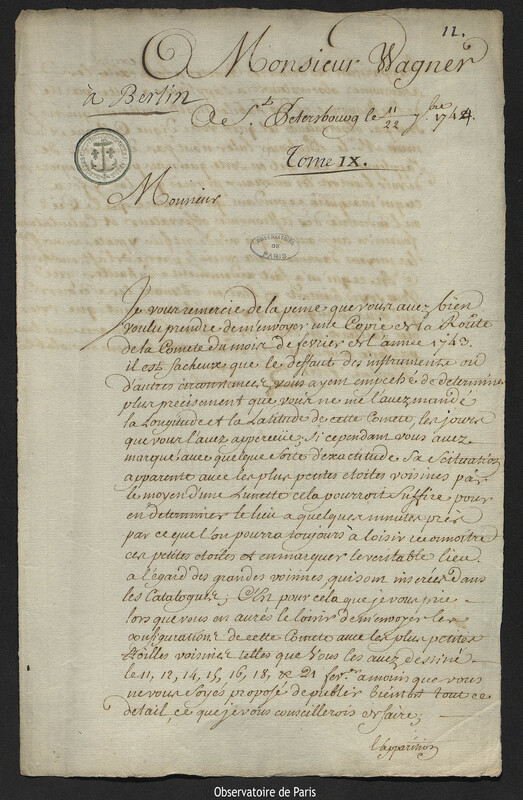 11.
A Monsieur Wagner
à Berlin
A St. Petersbourg le 11/22 7.bre 1744.
Tome IX.
Monsieur
OBSERVATOIRE
DE
PARIS
Je vous remercie de la peine que vous avez bien
voulu prendre de m'envoyer une Copie de la Route
de la Comete du mois de fevrier de l'année 1743.
il est facheux que le deffaut des instrumens ou
d'autres circonstances vous ayent empeché de determiner
plus precisement que vous ne me l'avez mandé
la Longitude et la Latitude de cette Comete, les jours
que vous l'avez apperceüe; si cependant vous avez
marqué avec quelque sorte d'exactitude sa scituation
apparente avec les plus petites etoiles voisines par
le moyen d'une Lunette cela pourroit suffire pour
en determiner le lieu a quelques minutes près
par ce que l'on pourra toujours a loisir reconnoitre
ces petites etoiles et en marquer le veritable lieu
a l'égard des grandes voisines qui sont inserées dans
les Catalogues; C'est pour cela que je vous prie
lors que vous en aurés le loisir de m'envoyer les
configurations de cette Comete avec les plus petites
Etoilles voisines telles que vous les avez dessiné
le 11, 12, 14, 15, 16, 18, & 21 fevr. a moins que vous
ne vous soyés proposé de publier bientot tout ce
detail, ce que je vous conseillerois de faire;
l'apparition
Observatoire de Paris